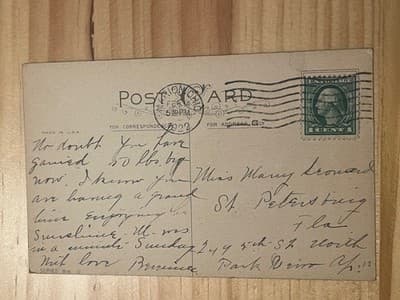 MADE IN U.S.A.
POST CARD
MARION OHIO
FEB
5 PM
1922
1 CENT 1
FOR CORRESPONDENCE
FOR ADDRESS ONLY
No doubt you have
gained 50 lbs by
now. I know you
are having a grand
time enjoying the
Sunshine.
in a minute Sunday
With love Bernice
SERIES No.
Miss Mary Leonard
St. Petersburg
Fla
249 5th St North
Park View Ap.